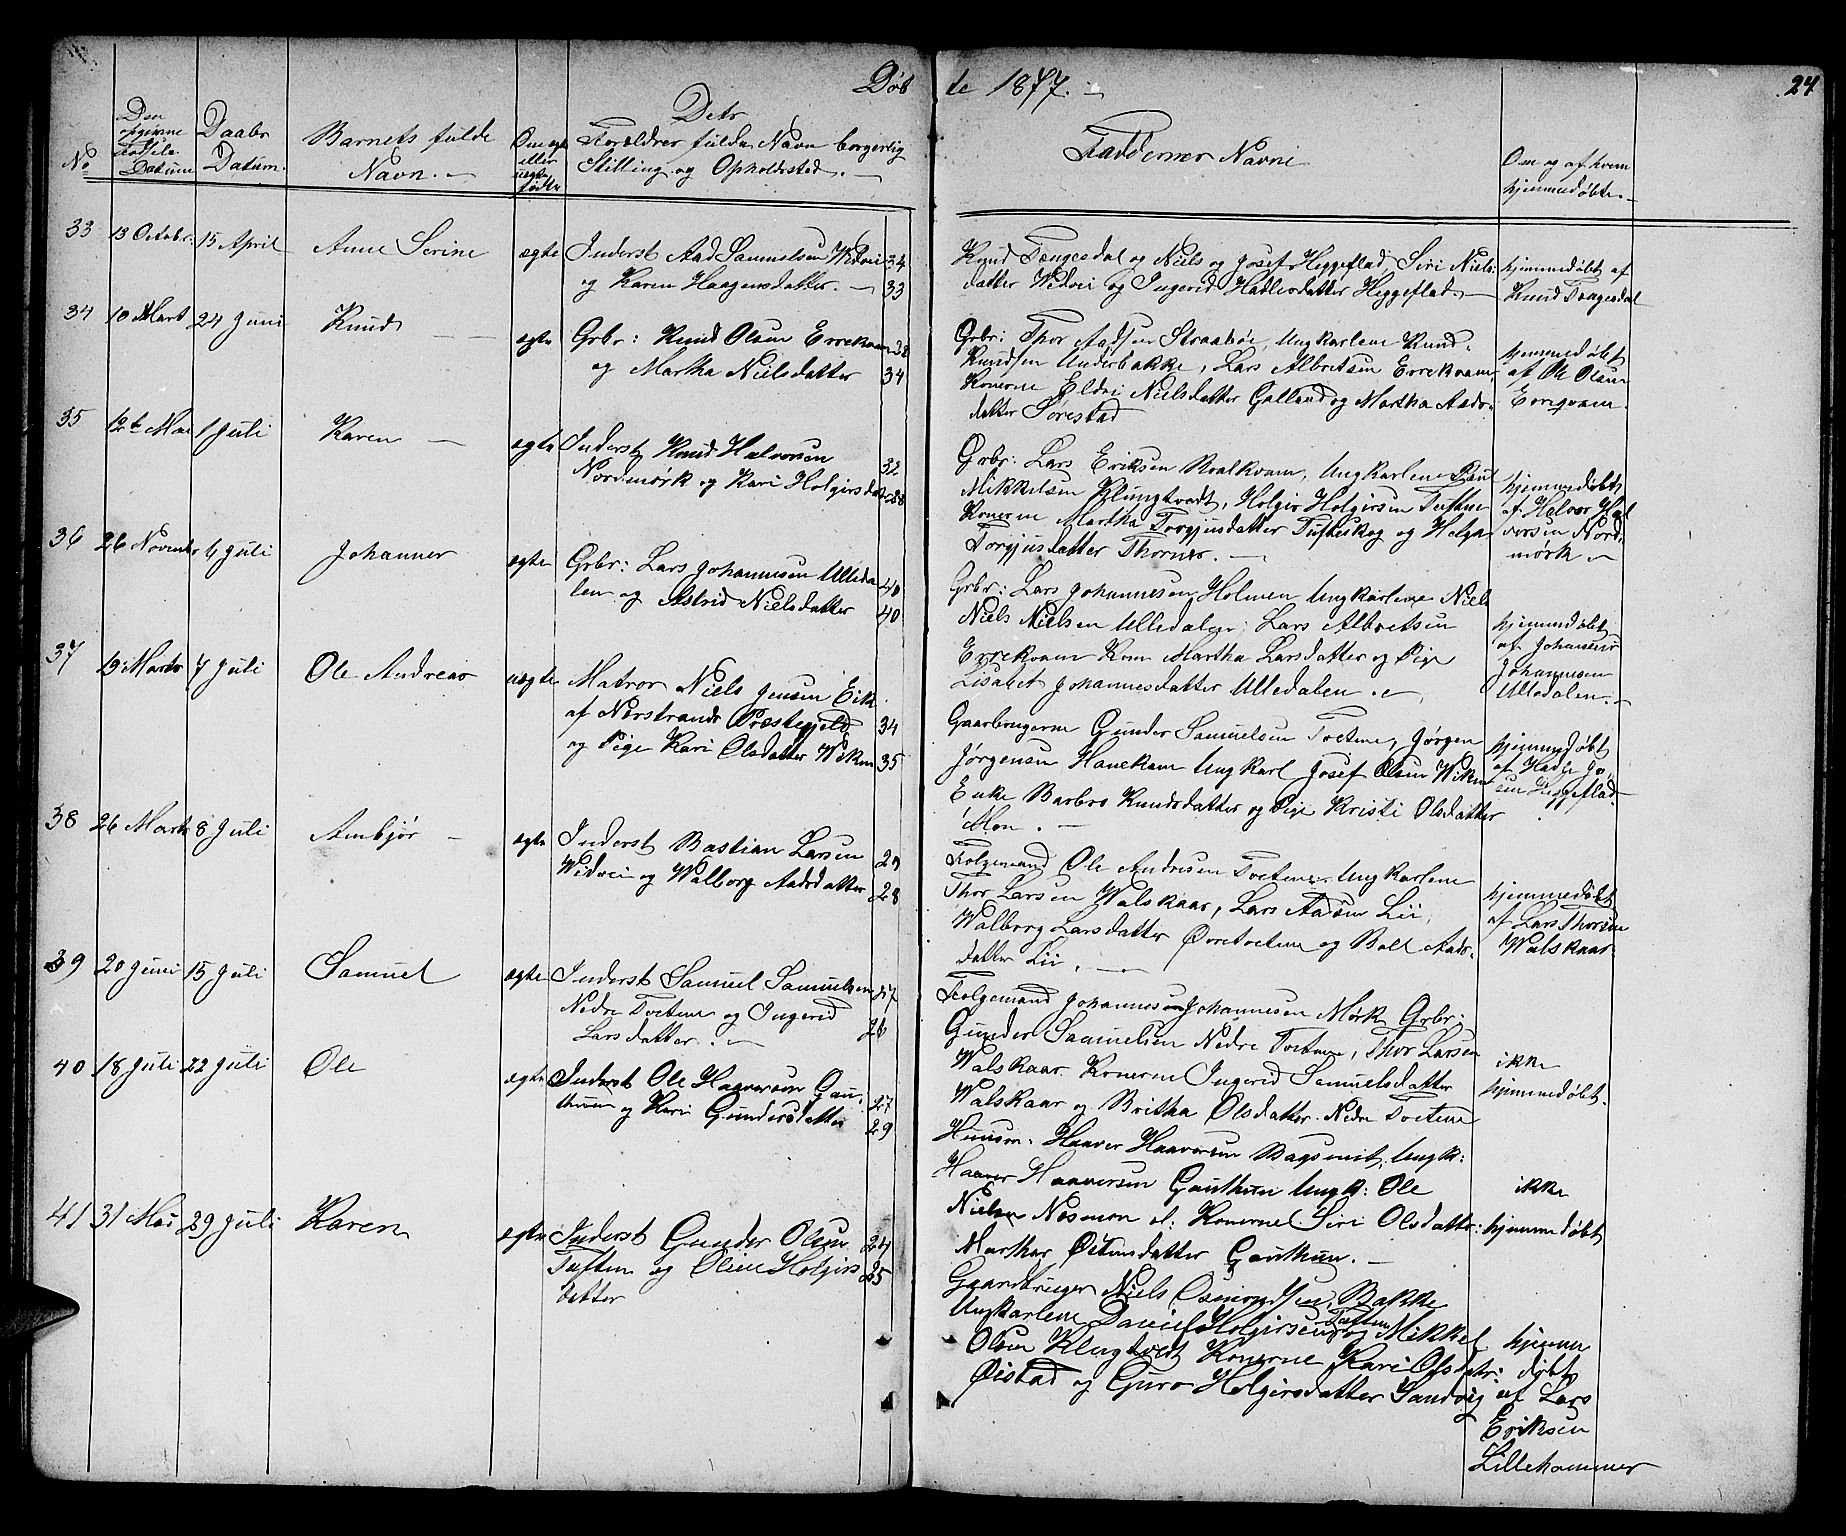 Døbte 1877. 24
No
Den opgivne Fødsels Datum
Daabs Datum.
Barnets fulde Navn.
Om ægte eller uægte fødte
Forældres fulde Navn borgerlig
Stilling og Opholdssted.
Faddernes Navne
Om og af hvem
hjemmedøbte.
33 13 Octobr. 15 April Anne Serine ægte Inderst Aad Samuelsen Widvei 34
og Karen Haagensdatter. 33
Knud Tængesdal og Niels og Josef Heggeflad, Siri Niels-
datter Widvei og Ingerid Hadlesdatter Heggeflad.
hjemmedøbt af
Knud Tængesdal
34 10 Mart 24 Juni Knud ægte Grbr: Knud Olsen Errekvam 38
og Martha Nielsdatter 34
Grbr: Thor Aadsen Straabøe, Ungkarlene Knud
Knudsen Underbakke, Lars Albretsen Errekvam,
Konerne Eldri Nielsdatter Galland og Martha Aads-
datter Sørestad
hjemmedøbt
af Ole Olsen
Erreqvam.
35 12te Mai 1 Juli Karen ægte Inderst Knud Halvorsen 32
Nordmørk og Kari Holgirsdatr 28
Grbr: Lars Eriksen Roalkvam, Ungkarlene Poul
Mikkelsen Klungtvedt, Holgir Holgirsen Tuftene
Konerne Martha Torgjusdatter Tufteskog og Helga
Torgjusdatter Thornes.
hjemmedøbt
af Halvor Hal
vorsen Nord
mørk
36 26 Novembr 6 Juli Johannes ægte Grbr: Lars Johannesen Ulleda 40
len og Astrid Nielsdatter 40
Grbr: Lars Johannesen Holmen Ungkarlene Niels
Niels Nielsen Ulledalen, Lars Albretsen
Errekvam Kone Martha Larsdatter og Pige
Lisabet Johannesdatter Ulledalen.
hjemmedøbt
af Johannes
Johannesen
Ulledalen.
37 13 Marts 7 Juli Ole Andreas uægte Matros Niels Jensen Eik
af Nerstrands Præstegjeld 34
og Pige Kari Olsdatter Wiken 35
Gaarbrugerne Gunder Samuelsen Tvetene, Jørgen
Jørgensen Hanekam Ungkarl Josef Olsen Wiken
Enke Barbro Knudsdatter og Pige Kristi Olsdatter
Mon.
hjemmedøbt
af Hadle Jo
sen Heggeflad.
38 26 Marts 8 Juli Ambjør ægte Inderst Bastian Larsen 29
Widvei og Walborg Aadsdatter 28
Folgemand Ole Andresen Tvetene Ungkarlene
Thor Larsen Walskaar, Lars Aadsen Lii,
Walborg Larsdatter Øvretvetene og Boll Aads-
datter Lii.
hjemmedøbt
af Lars Thorsen
Walskaar
39 20 Juni 15 Juli Samuel ægte Inderst Samuel Samuelsen 27
Nedre Tvetene og Ingerid 26
Larsdatter.
Folgemand Johannes Johannesen Mørk Grbr:
Gunder Samuelsen Nedre Tvetene, Thor Larsen
Walskaar Konerne Ingerid Samuelsdatter
Walskaar og Britha Olsdatter Nedre Tvetene
ikke
hjemmedøbt.
40 18 Juli 22 Juli Ole ægte Inderst Ole Haaversen Gau- 27
thun og Kari Gundersdatter 29
Husm: Haaver Haaversen Bagsmit, Ungk:
Haaver Haaversen Gauthun Ungk: Ole
Nielsen Nesmon d: Konerne Siri Olsdatter
Marthar Østensdatter Gauthun.
ikke
hjemmedøbt
41 31 Mai 29 Juli Karen ægte Inderst Gunder Olsen 24
Tuften og Oline Holgirs 25
datter
Gaardbruger Niels Osmondsen, Bakke
Ungkarlene Daniel Holgirsen Tuften og Mikkel
Olsen Klugtvedt Konerne Kari Olsdatr:
Øistad og Guro Holgirsdatter Sandvig
hjemme
døbt
af Lars
Eriksen
Lillehammer